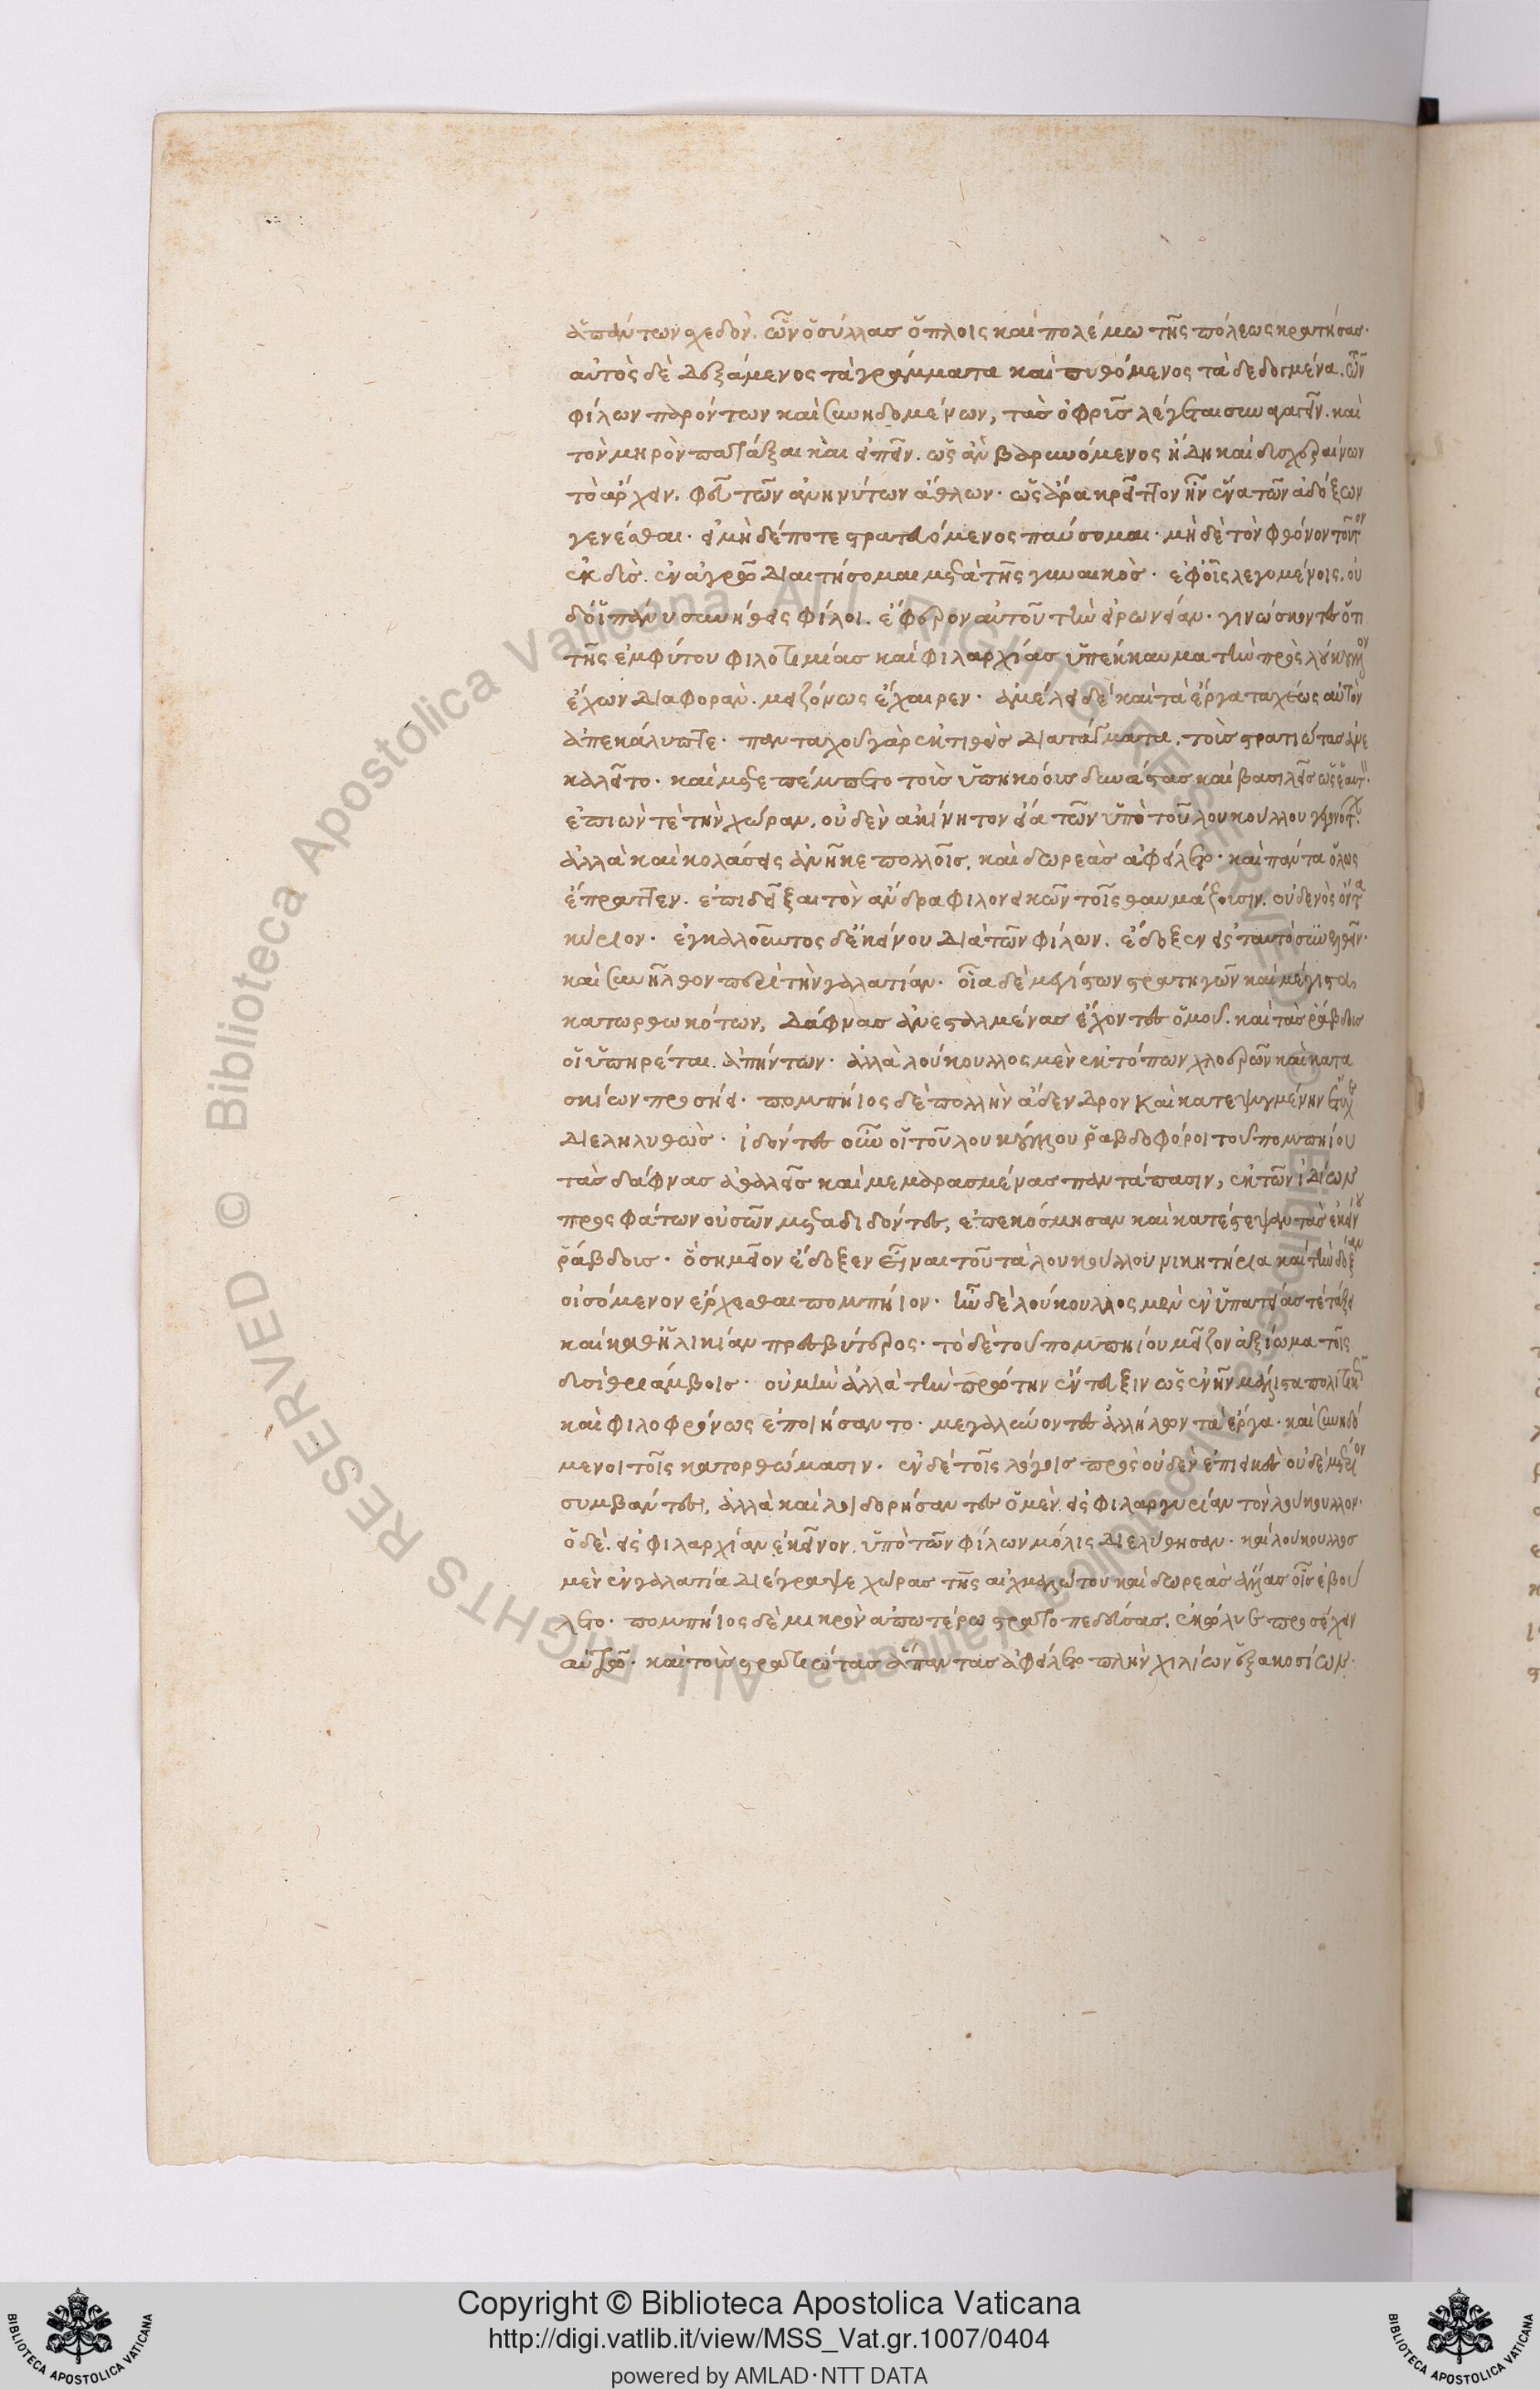 ἁπάντων σχεδὸν. ὧν ὁ σύλλας ὅπλοις καὶ πολέμω τῆς πόλεως κρατήσας·
αὐτὸς δὲ δεξάμενος τὰ γράμματα καὶ πυθόμενος τὰ δεδογμένα. τῶν
φίλων παρόντων καὶ συνηδομένων, τὰς ὀφρῦς λέγεται συναγαγεῖν. καὶ
τὸν μηρὸν πατάξαι καὶ εἰπεῖν. ὡς ἂν βαρυνόμενος ἤδη καὶ δυσχεραίνων
τὸ ἄρχειν. φεῦ τῶν ἀνηνύτων ἄθλων· ὡς ἄρα κρεῖττον ἦν ἕνα τῶν ἀδόξων
γενέσθαι· εἰ μηδέποτε στρατευόμενος παύσομαι· μὴ δὲ τὸν φθόνον τοῦτον
ἐκδὺς. ἐν ἀγρῷ διαιτήσομαι μετὰ τῆς γυναικὸς· ἐφ' οἷς λεγομένοις, οὐ
δ' οἱ πάνυ συνήθεις φίλοι. ἔφερον αὐτοῦ τὴν εἰρωνείαν· γινώσκοντες ὅτι
τῆς ἐμφύτου φιλοτιμίας καὶ φιλαρχίας ὑπέκκαυμα τὴν πρὸς λούκουλλον
ἔχων διαφορὰν. μειζόνως ἔχαιρεν· ἀμέλει δὲ καὶ τὰ ἔργα ταχέως αὐτὸν
ἀπεκάλυπτε· πανταχοῦ γὰρ ἐκτιθεὶς διατάγματα. τοὺς στρατιώτας ἀνε
καλεῖτο· καὶ μετεπέμπετο τοὺς ὑπηκόους δυνάστας καὶ βασιλεῖς ὡς ἑαυτὸν·
ἐπιών τὲ τὴν χώραν. οὐδὲν ἀκίνητον εἴα τῶν ὑπὸ τοῦ λουκούλλου γεγονότων·
ἀλλὰ καὶ κολάσεις ἀνῆκε πολλοῖς. καὶ δωρεὰς ἀφείλετο· καὶ πάντα ὅλως
ἔπραττεν. ἐπιδεῖξαι τὸν ἄνδρα φιλονεικῶν τοῖς θαυμάζουσιν. οὐδενὸς ὄντα
κύριον· ἐγκαλοῦντος δὲ ἐκείνου διὰ τῶν φίλων. ἔδοξεν εἰς ταυτὸ συνελθεῖν·
καὶ συνῆλθον περὶ τὴν γαλατίαν· οἷα δὲ μεγίστων στρατηγῶν καὶ μέγιστα,
κατωρθωκότων, δάφνας ἀνεσταλμένας ἔχοντες ὁμοῦ. καὶ τὰς ῥάβδους
οἱ ὑπηρέται. ἀπήντων· ἀλλὰ λούκουλλος μὲν ἐκ τόπων χλοερῶν καὶ κατα
σκίων προσήει· πομπήιος δὲ πολλὴν ἄδενδρον καὶ κατεψυγμένην ἔτυχε
διεληλυθὼς· ἰδόντες οὖν οἱ τοῦ λουκούλλου ῥαβδοφόροι τοῦ πομπηίου
τὰς δάφνας ἀθαλεῖς καὶ μεμαρασμένας παντάπασιν, ἐκ τῶν ἰδίων
προσφάτων οὐσῶν μεταδιδόντες, ἐπεκόσμησαν καὶ κατέστεψαν τὰς ἐκείνου
ῥάβδους· ὃ σημεῖον ἔδοξεν εἶναι τοῦ τὰ λουκούλλου νικητήρια καὶ τὴν δόξαν
οἰσόμενον ἔρχεσθαι πομπήιον· ἦν δὲ λούκουλλος μὲν ἐν ὑπατείας τε τάξει
καὶ καθ' ἡλικίαν πρεσβύτερος· τὸ δὲ τοῦ πομπηίου μεῖζον ἀξίωμα τοῖς
δυσὶ θριάμβοις· οὐ μὴν ἀλλὰ τὴν πρώτην ἔντευξιν ὡς ἐνῆν μάλιστα πολιτικῶς
καὶ φιλοφρόνως ἐποιήσαντο· μεγαλύνοντες ἀλλήλων τὰ ἔργα· καὶ συνηδό
μενοι τοῖς κατορθώμασιν· ἐν δὲ τοῖς λόγοις πρὸς οὐδὲν ἐπιεικὲς οὐδὲ μέτριον
συμβάντες, ἀλλὰ καὶ λοιδορήσαντες ὁ μὲν εἰς φιλαργυρίαν τὸν λούκουλλον·
ὁ δὲ. εἰς φιλαρχίαν ἐκεῖνον. ὑπὸ τῶν φίλων μόλις διελύθησαν· καὶ λούκουλλος
μὲν ἐν γαλατία διέγραψε χώρας τῆς αἰχμαλώτου καὶ δωρεὰς ἄλλας οἷς ἐβού
λετο· πομπήιος δὲ μικρὸν ἀπωτέρω στρατοπεδεύσας. ἐκώλυε προσέχειν
αὐτῷ· καὶ τοὺς στρατιώτας ἅπαντας ἀφείλετο πλὴν χιλίων ἑξακοσίων·
Copyright © Biblioteca Apostolica Vaticana
http://digi.vatlib.it/view/MSS_Vat.gr.1007/0404
powered by AMLAD·NTT DATA
BIBLIOTECA APOSTOLICA VATICANA
BIBLIOTECA APOSTOLICA VATICANA
© Biblioteca Apostolica Vaticana ALL RIGHTS RESERVED
© Biblioteca Apostolica Vaticana ALL RIGHTS RESERVED